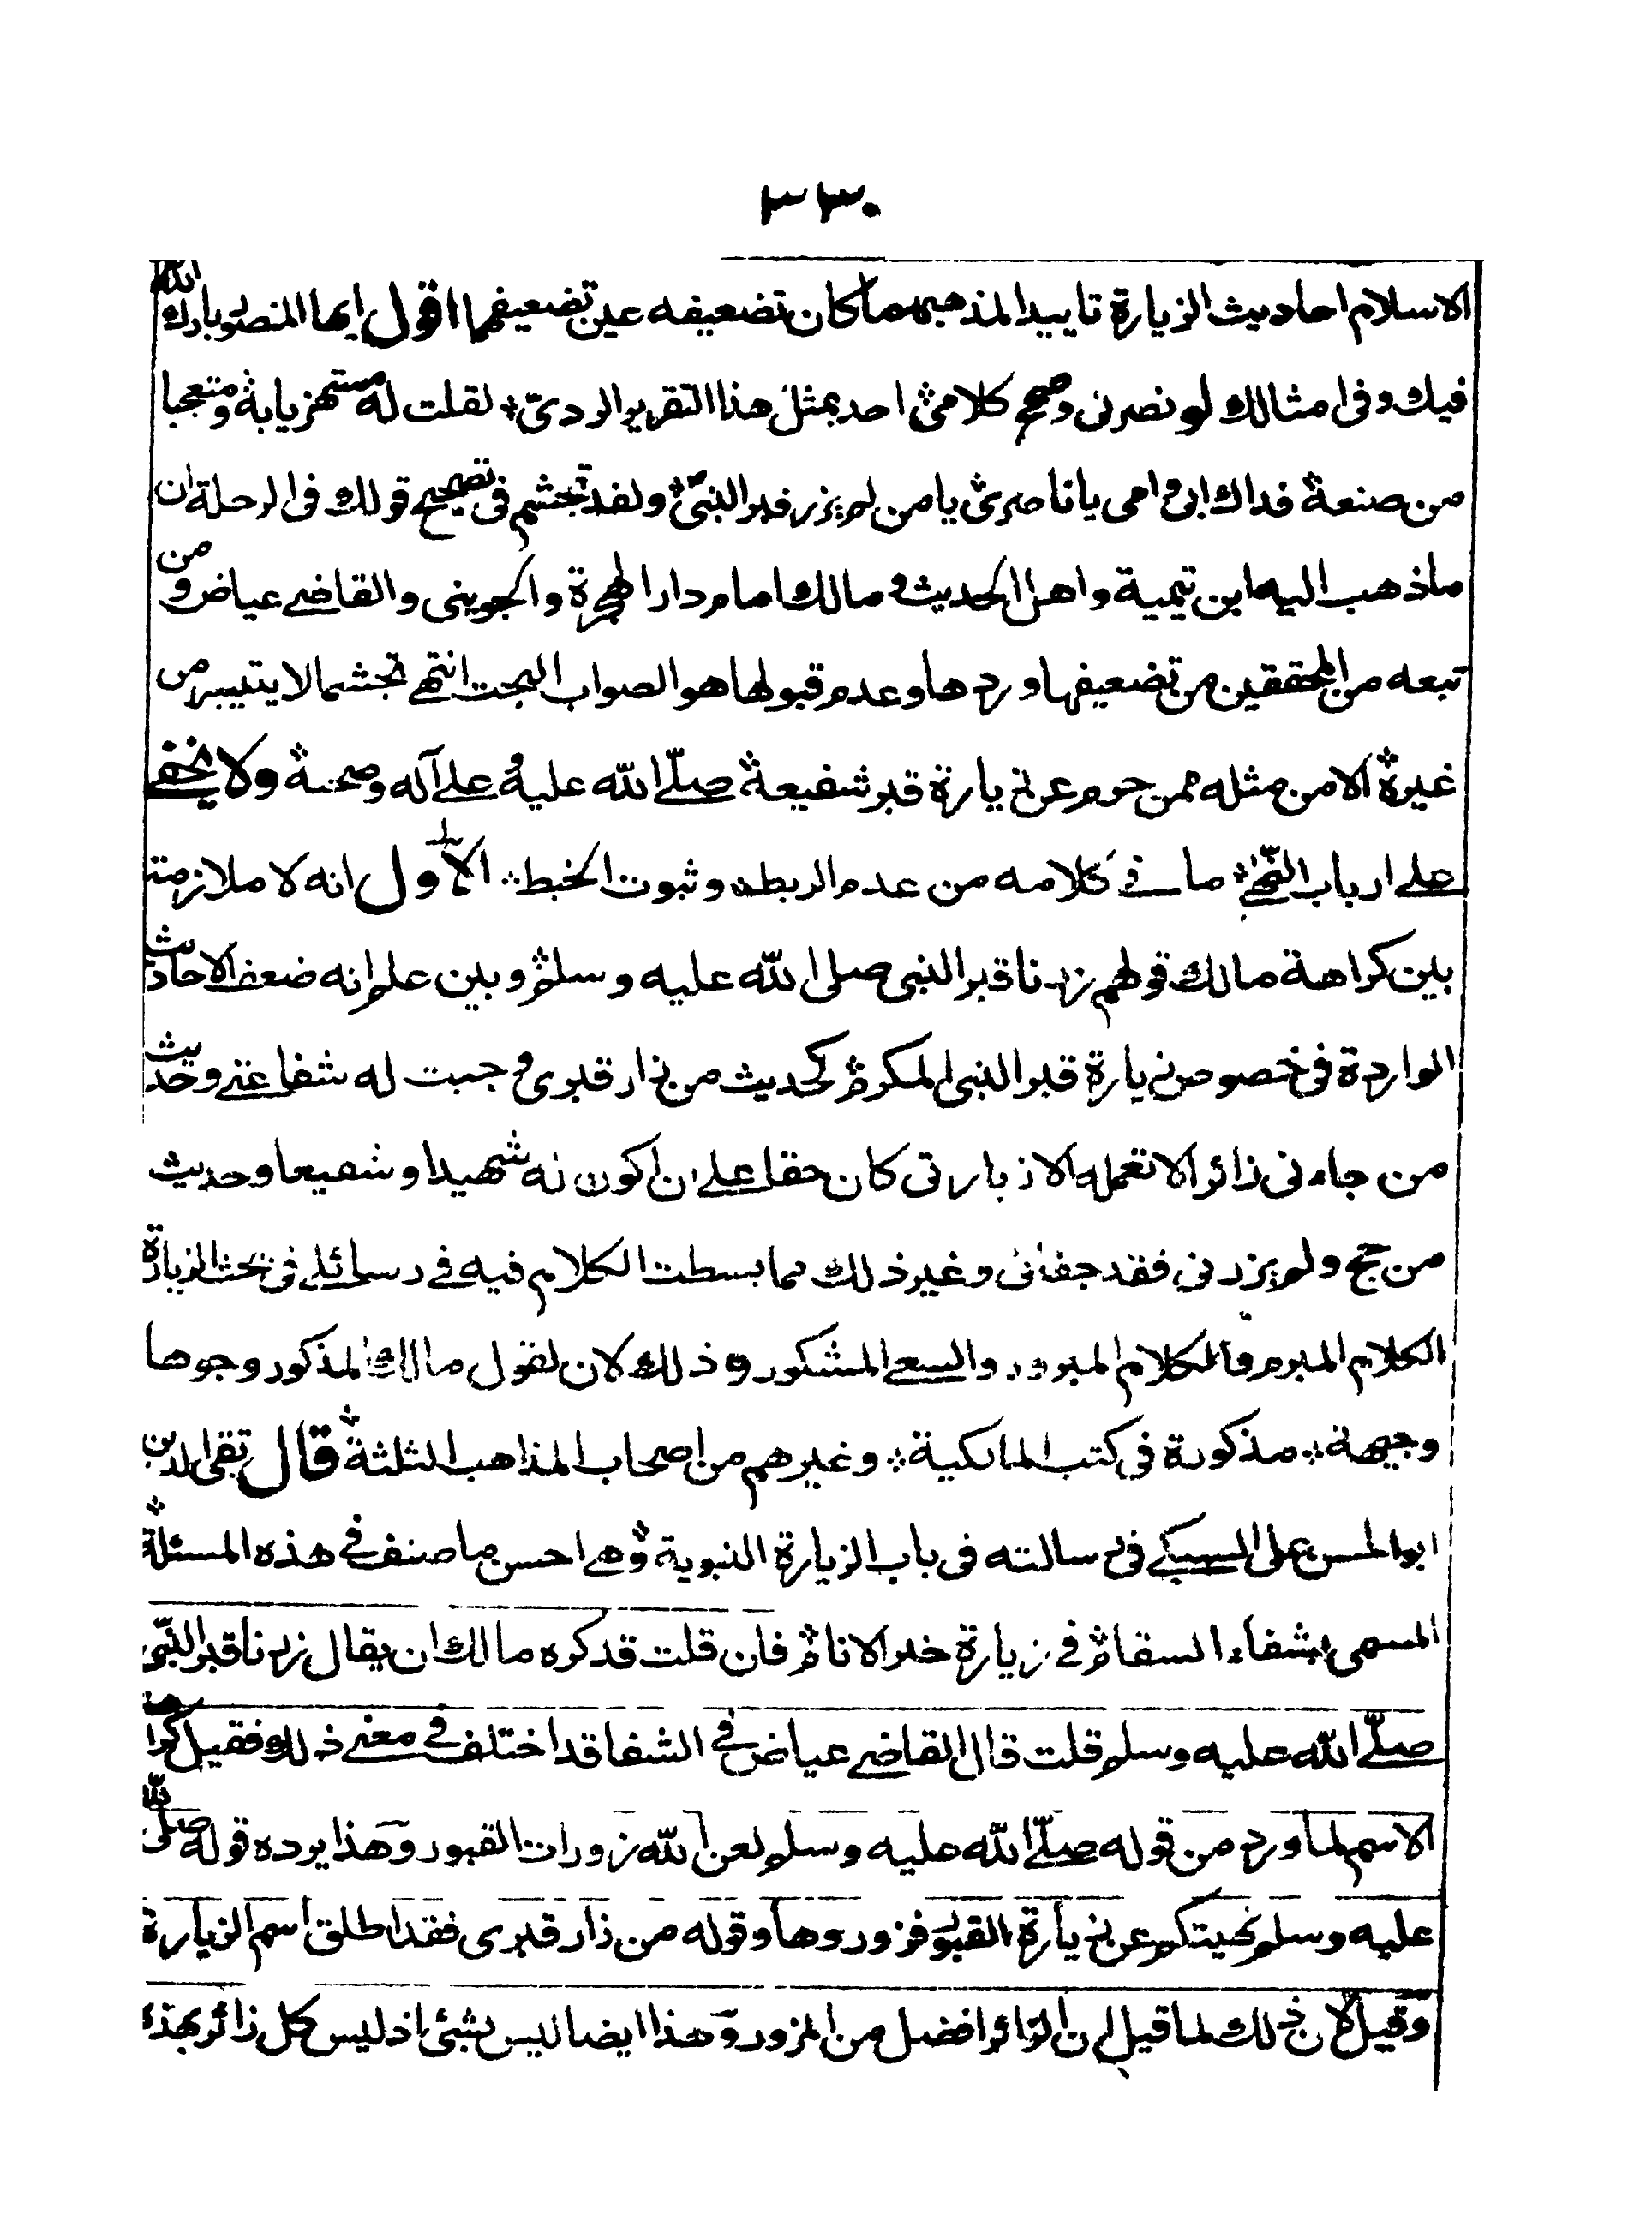 ٣٣٠
الاسلام احاديث الزيارة تاييدا لمذهبهما كان تضعيفه عين تضعيفهما اقول ايها المنصور بارك الله
فيك وفى امثالك لو نصرنى وصحح كلامى احد بمثل هذا التقرير الردى لقلت له مستهزيا به ومتعجبا
من صنعه فداك ابى وامى يا ناصرى يا من لم يزر قبر النبى ولقد تجشم فى تصحيح قولك فى الرحلة ان
ما ذهب اليه ابن تيمية واهل الحديث ومالك امام دار الهجرة والجوينى والقاضى عياض ومن
تبعه من المحققين من تضعيفها وردها وعدم قبولها هو الصواب البحت انتهى تجشما لا يتيسر من
غيره الا من مثله ممن حرم عن زيارة قبر شفيعه صلى الله عليه وعلى آله وصحبه ولا يخفى
على ارباب النهى ما فى كلامه من عدم الربط وثبوت الخبط الاول انه لا ملازمة
بين كراهة مالك قولهم زرنا قبر النبى صلى الله عليه وسلم وبين علم انه ضعف الاحاديث
الواردة فى خصوص زيارة قبر النبى المكرم كحديث من زار قبرى وجبت له شفاعتى وحديث
من جاءنى زائرا لا تعمله الا زيارتى كان حقا على ان اكون له شهيدا وشفيعا وحديث
من حج ولم يزرنى فقد جفانى وغير ذلك مما بسطت الكلام فيه فى رسائلى فى بحث الزيارة
الكلام المبرم والكلام المبرور والسعى المشكور وذلك لان لقول مالك المذكور وجوها
وجيهة مذكورة فى كتب المالكية وغيرهم من اصحاب المذاهب الثلثة قال تقى الدين
ابو الحسن على السبكى فى رسالته فى باب الزيارة النبوية وهى احسن ما صنف فى هذه المسئلة
المسمى بشفاء السقام فى زيارة خير الانام فان قلت قد كره مالك ان يقال زرنا قبر النبى
صلى الله عليه وسلم قلت قال القاضى عياض فى الشفا قد اختلف فى معنى ذلك فقيل كراهة
الاسم لما ورد من قوله صلى الله عليه وسلم لعن الله زورات القبور وهذا يرده قوله صلى الله
عليه وسلم نهيتكم عن زيارة القبور فزوروها وقوله من زار قبرى فقد اطلق اسم الزيارة
وقيل لان ذلك لما قيل ان الزائر افضل من المزور وهذا ايضا ليس بشئ اذ ليس كل زائر بهذه